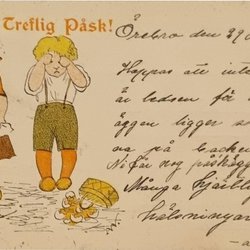 Treflig Påsk!
Örebro den 29
Hoppas att inte
är ledsen för
äggen ligger s
na på backe
Ni får nog påskägg
Många hjärtlig
hälsningar